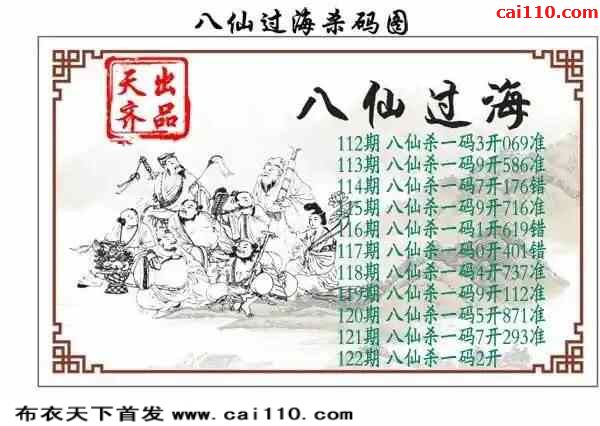 八仙过海杀码图
cai110.com
天齐
出品
八仙过海
112期 八仙杀一码3开069准
113期 八仙杀一码9开586准
114期 八仙杀一码7开176错
115期 八仙杀一码9开716准
116期 八仙杀一码1开619错
117期 八仙杀一码0开401错
118期 八仙杀一码4开737准
119期 八仙杀一码9开112准
120期 八仙杀一码5开871准
121期 八仙杀一码7开293准
122期 八仙杀一码2开
布衣天下首发 www.cai110.com